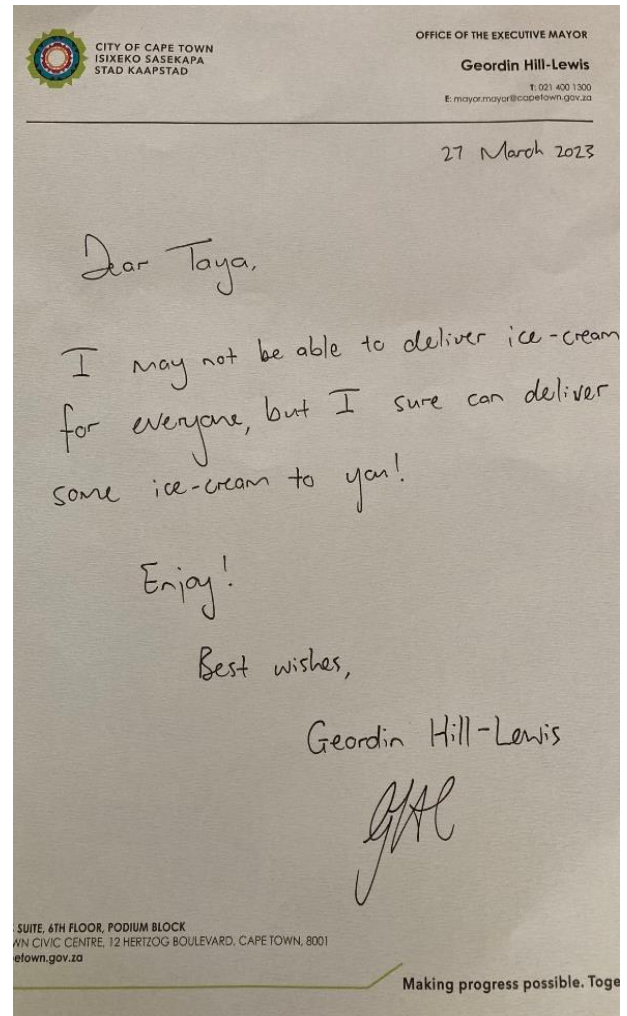 CITY OF CAPE TOWN
ISIXEKO SASEKAPA
STAD KAAPSTAD
OFFICE OF THE EXECUTIVE MAYOR
Geordin Hill-Lewis
T: 021 400 1300
E: mayor.mayor@capetown.gov.za
27 March 2023
Dear Taya,
I may not be able to deliver ice-cream
for everyone, but I sure can deliver
some ice-cream to you!
Enjoy!
Best wishes,
Geordin Hill-Lewis
GHL
SUITE, 6TH FLOOR, PODIUM BLOCK
WN CIVIC CENTRE, 12 HERTZOG BOULEVARD, CAPE TOWN, 8001
etown.gov.za
Making progress possible. Toge